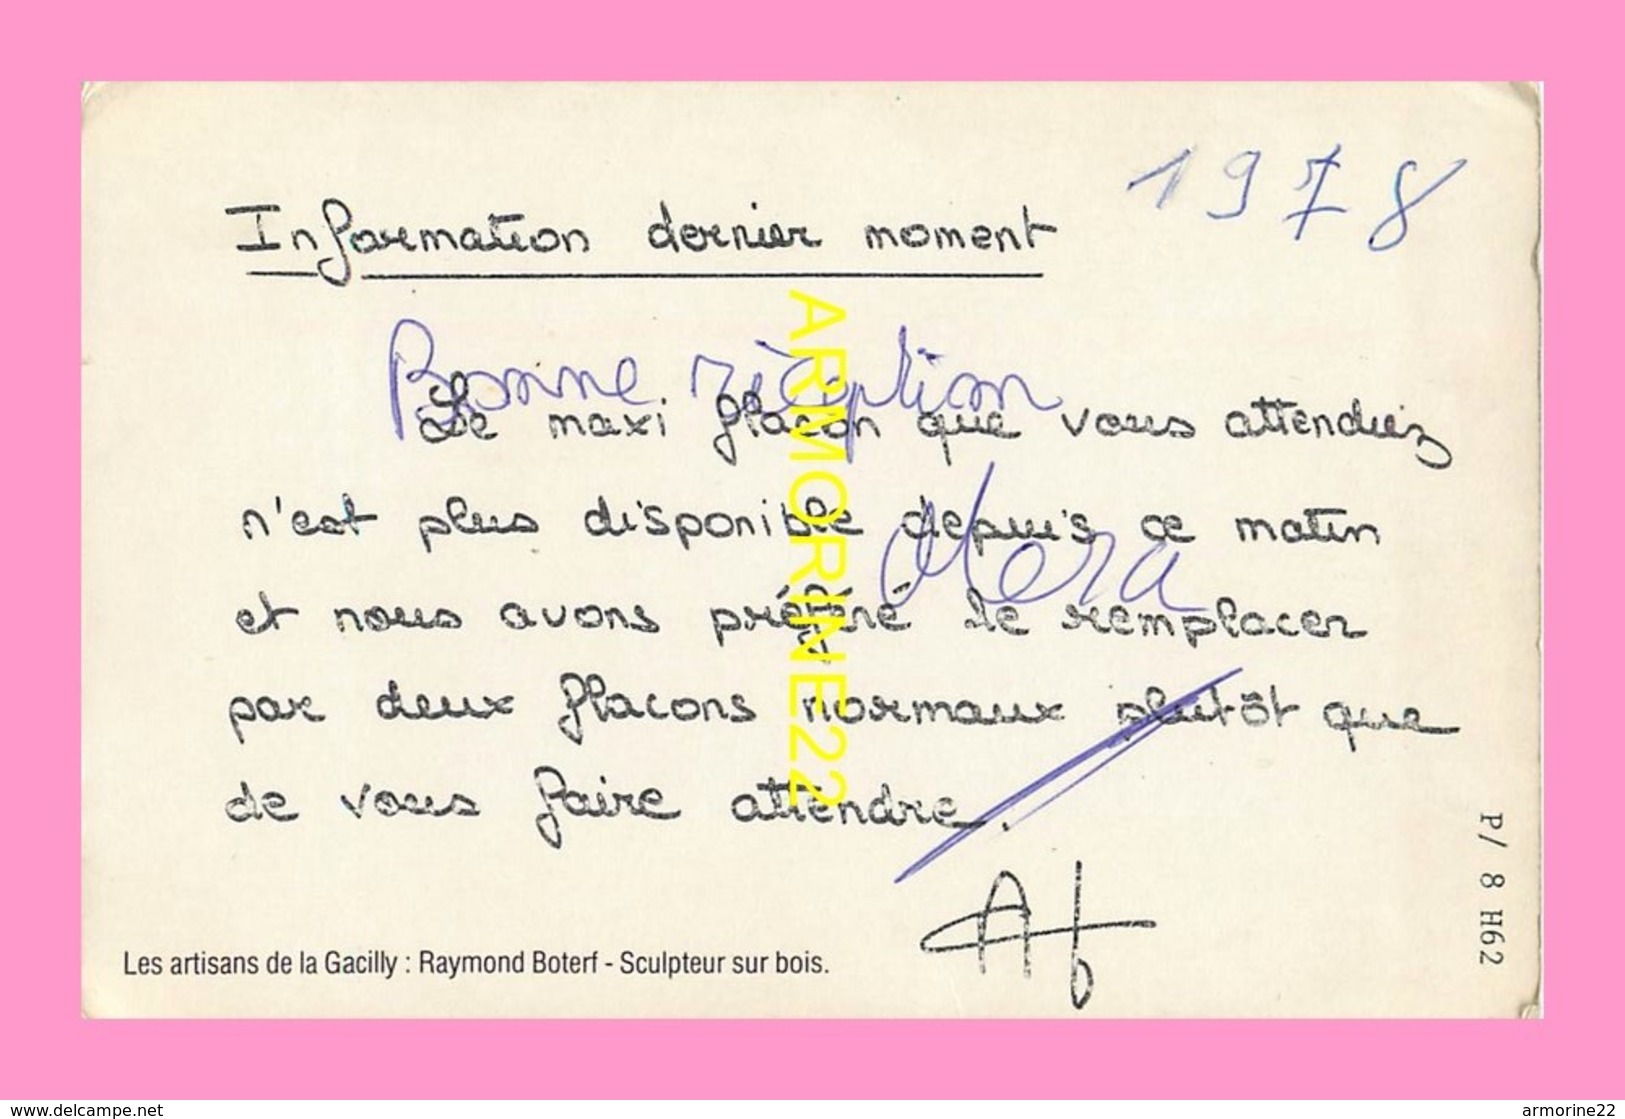 1978
Information dernier moment
Bonne réception
Le maxi flacon que vous attendiez
n'est plus disponible depuis ce matin
et nous avons préféré le remplacer
par deux flacons normaux plutôt que
de vous faire attendre.
Les artisans de la Gacilly : Raymond Boterf - Sculpteur sur bois.
P/ 8 H62
ARMORINE22
www.delcampe.net
armorine22